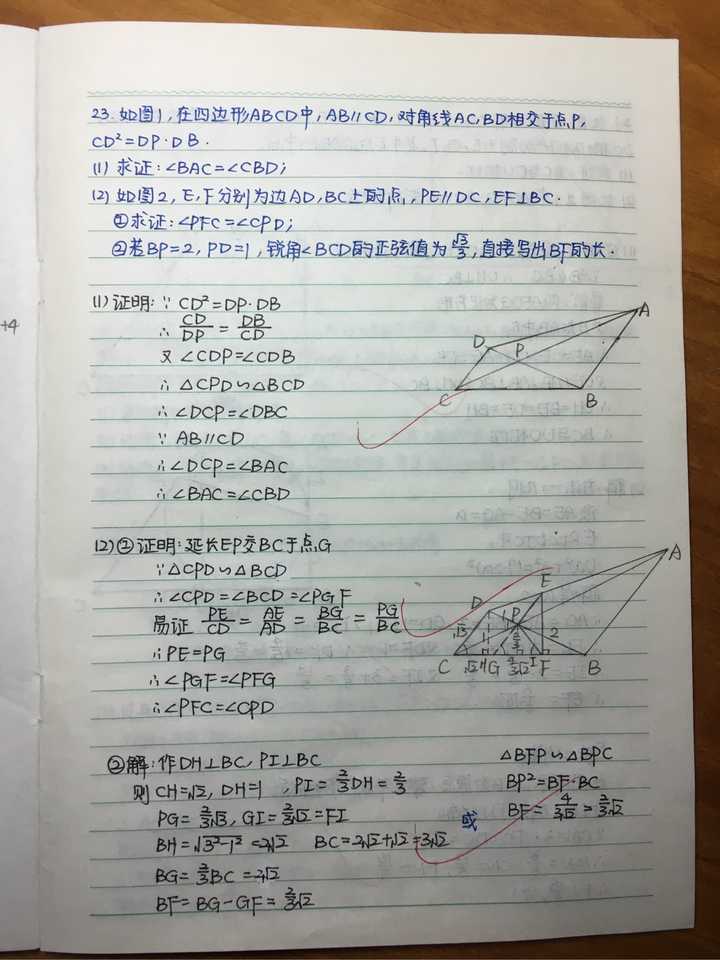 +4
23. 如图1,在四边形ABCD中,AB∥CD,对角线AC,BD相交于点P,
CD²=DP·DB.
(1) 求证:∠BAC=∠CBD;
(2) 如图2,E,F分别为边AD,BC上的点,PE∥DC,EF⊥BC.
①求证:∠PFC=∠CPD;
②若BP=2,PD=1,锐角∠BCD的正弦值为√3/3,直接写出BF的长.
(1) 证明:∵ CD²=DP·DB
∴ CD/DP = DB/CD
又 ∠CDP=∠CDB
∴ △CPD∽△BCD
∴ ∠DCP=∠DBC
∵ AB∥CD
∴ ∠DCP=∠BAC
∴ ∠BAC=∠CBD
A
D P
C B
(2)①证明:延长EP交BC于点G
∵△CPD∽△BCD
∴ ∠CPD=∠BCD=∠PGF
易证 PE/CD = AE/AD = BG/BC = PG/BC
∴ PE=PG
∴ ∠PGF=∠PFG
∴ ∠PFC=∠CPD
A
E
D 1 P
√3 1 2/3 2
C √2 H G 2/3√2 I F B
②解:作DH⊥BC,PI⊥BC
则 CH=√2, DH=1 ,PI=2/3DH=2/3
PG=2/3√3, GI=2/3√2=FI
BH=√3²-1²=2√2 BC=2√2+√2=3√2
BG=2/3BC=2√2
BF=BG-GF=2/3√2
或
△BFP∽△BPC
BP²=BF·BC
BF=4/3√2=2/3√2